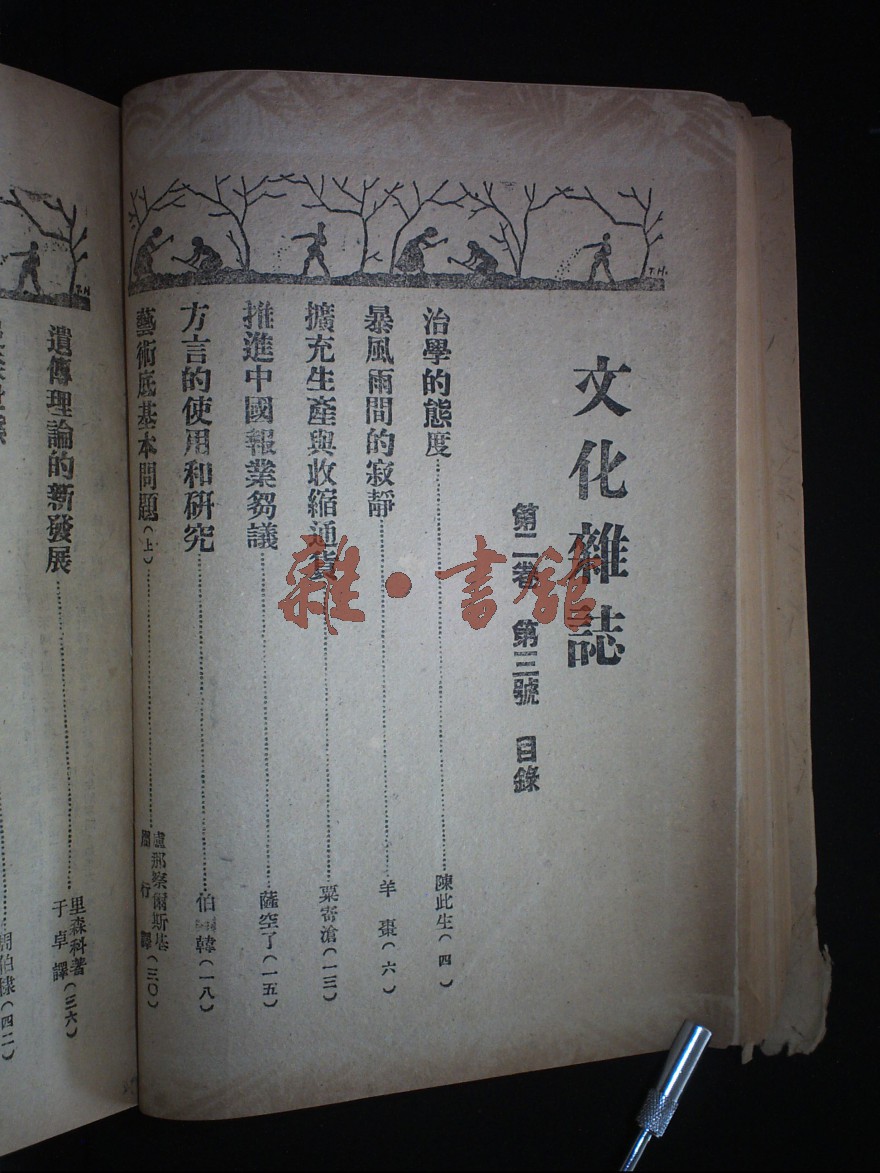 文化雜誌
第二卷 第三號 目錄
治學的態度……陳此生(四)
暴風雨間的寂靜……羊棗(六)
擴充生產與收縮通貨……粟寄滄(一三)
推進中國報業芻議……薩空了(一五)
方言的使用和研究……伯韓(一八)
藝術底基本問題(上)……盧那察爾斯基
周行譯(三〇)
遺傳理論的新發展……里森科著
于卓譯(三六)
周伯棣(四二)
T.H.
T.H.
雜·書館